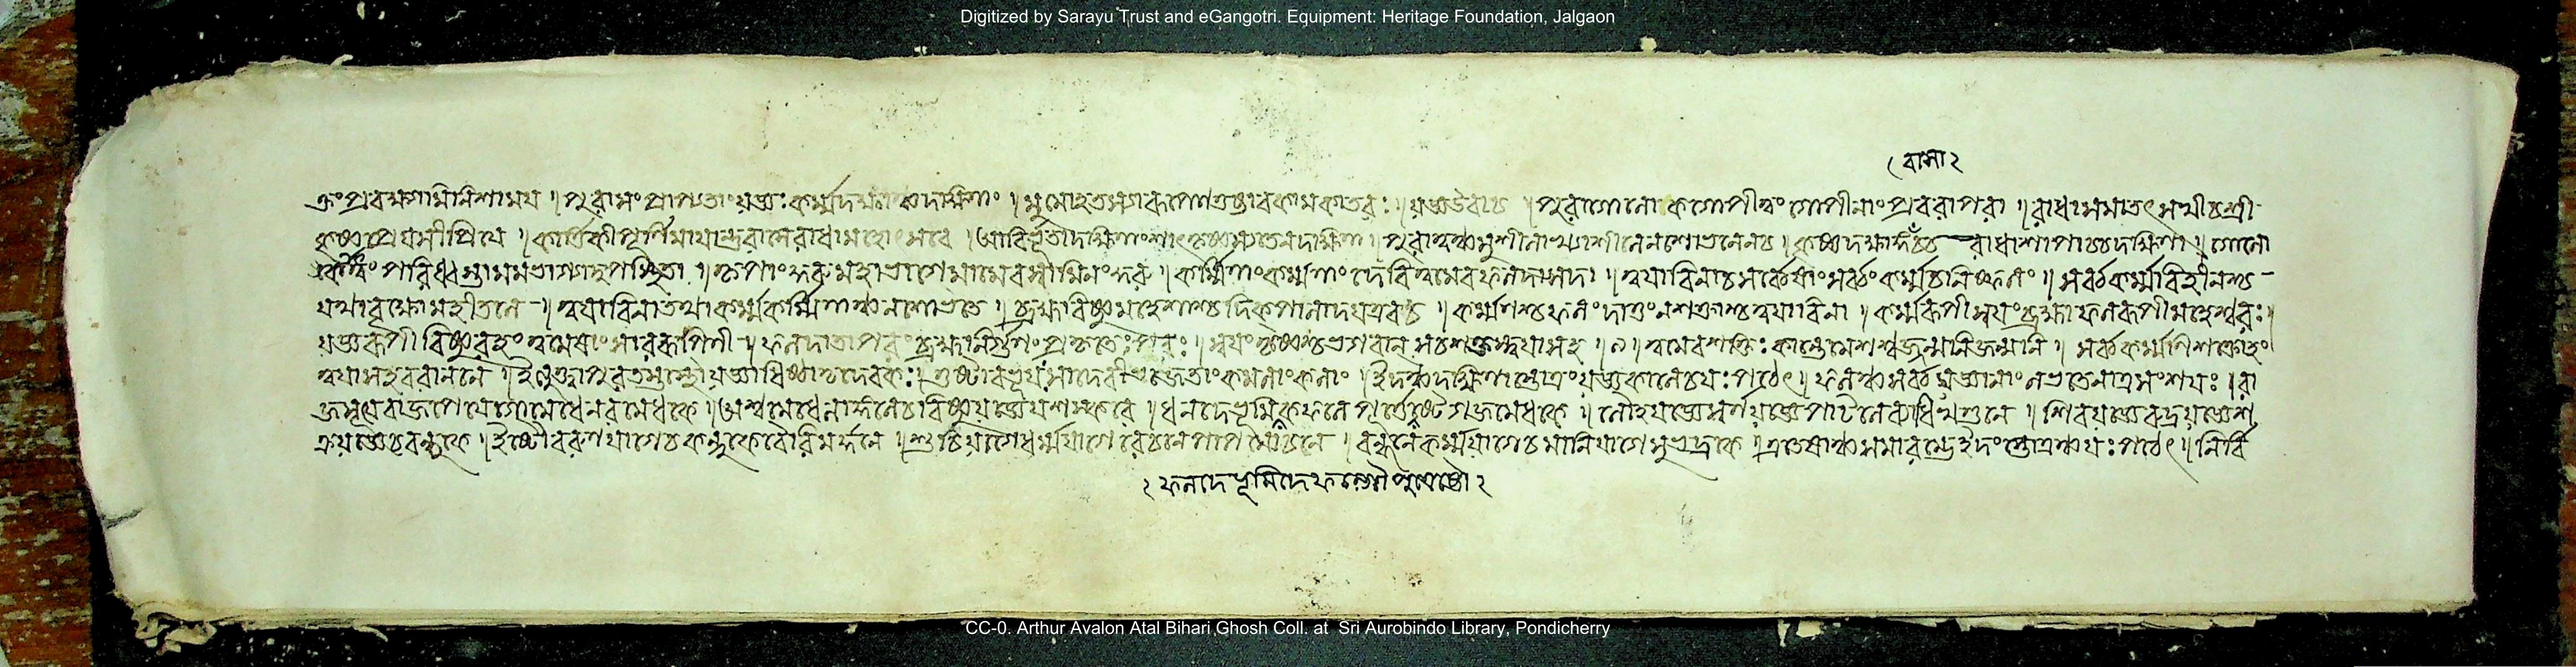 Digitized by Sarayu Trust and eGangotri. Equipment: Heritage Foundation, Jalgaon
বামা২
কর্ম্মদক্ষ । যজ্ঞউবাচ । পুরাগোলোকগোপীত্বং গোপীনাং প্রবরাপরা । রাধাসমাতৎসখীচশ্রী
কৃষ্ণপ্রেয়সীপ্রিয়ে । কার্ত্তিকীপূর্ণিমায়ান্তুরাসেরাধামহোৎসবে । আবির্ভূতাদক্ষিণাংশাৎকৃষ্ণস্যতেনদক্ষিণা । পুরাত্বঞ্চসুশীলাখ্যাশীলেনশোভনেনচ । কৃষ্ণদক্ষাংশ রাধাশাপাচ্চদক্ষিণা । গোলো
কাত্ত্বং পরিধ্বস্তামমভাগ্যাদুপস্থিতা । কৃপাংকুরুমহাভাগেমামেবস্বামিনংকুরু । কর্ম্মিণাংকর্ম্মণাং দেবিত্বমেবফলদাসদা । ত্বয়াবিনাচসর্ব্বেষাংসর্ব্বং কর্ম্মচনিষ্ফলং । সর্ব্বকর্ম্মাবিহীনশ্চ
যথাবৃক্ষোমহীতলে । ত্বয়াবিনাতথাকর্ম্মকর্ম্মিণাঞ্চনশোভতে । ব্রহ্মাবিষ্ণুমহেশাশ্চদিক্পালাদয়এবচ । কর্ম্মণশ্চফলং দাতুং নশক্তাশ্চত্বয়াবিনা । কর্ম্মরূপীস্বয়ং ব্রহ্মাফলরূপীমহেশ্বরঃ ।
যজ্ঞরূপী বিষ্ণুরহং ত্বমেষাং সাররূপিণী । ফলদাতাপরং ব্রহ্মানির্গুণং প্রকৃতেঃপরঃ । স্বয়ং কৃষ্ণশ্চভগবান্ সচশক্তস্ত্বয়াসহ । ত্বমেবশক্তিঃ কান্তেমেশশ্বজ্জন্মনিজন্মনি । সর্ব্বকর্ম্মণিশক্তোহং
ত্বয়াসহবরাননে । ইত্যুক্ত্বাপুরতস্তস্থৌযজ্ঞাধিষ্ঠাতৃদেবকঃ । তুষ্টাবভূয়সাদেবীভেজেতাংকমলাংকলাং । ইদঞ্চদক্ষিণাস্তোত্রং যজ্ঞকালেচযঃপঠেৎ । ফলঞ্চসর্ব্বযজ্ঞানাং লভতেনাত্রসংশয়ঃ । রা
জসূয়েবাজপেয়েগোমেধেনরমেধকে । অশ্বমেধেলাঙ্গলেচবিষ্ণুযজ্ঞেযশস্করে । ধনদেভূমিদেফলে পূর্ত্তে গজমেধকে । লৌহযজ্ঞেস্বর্ণযজ্ঞেপাটলেব্যাধিখণ্ডনে । শিবযজ্ঞেরুদ্রযজ্ঞেশ
ক্রযজ্ঞেচবন্ধুকে । ইষ্টৌবরুণযাগেচকন্দুকেবৈরিমর্দ্দনে । শুচিযাগেধর্ম্মযাগে রেচনেপাপমোচনে । বন্ধনেকর্ম্মযাগেচমনিযাগেসুভদ্রকে । এতেষাঞ্চসমারম্ভেইদংস্তোত্রঞ্চযঃপঠেৎ । নির্বি
২ ফলদেভূমিদেফল্গৌপুত্রেষ্টৌ২
CC-0. Arthur Avalon Atal Bihari Ghosh Coll. at Sri Aurobindo Library, Pondicherry